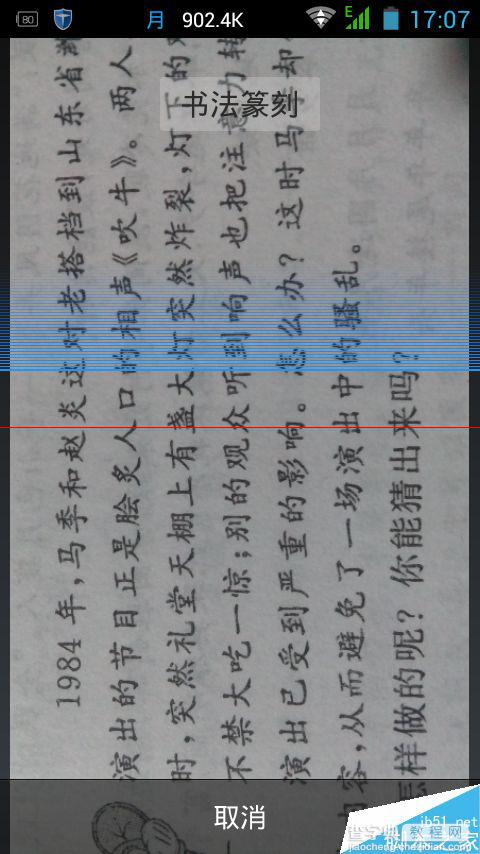 80 月 902.4K E 17:07
书法篆刻
1984 年，马季和赵炎这对老搭档到山东省
演出的节目正是脍炙人口的相声《吹牛》。两人
时，突然礼堂天棚上有盏大灯突然炸裂，灯下的
不禁大吃一惊；别的观众听到响声也把注意力转
演出已受到严重的影响。怎么办？这时马季却
容，从而避免了一场演出中的骚乱。
怎样做的呢？你能猜出来吗？
取消
jb51.net
查字典 教程网
jiaocheng.chazidian.com